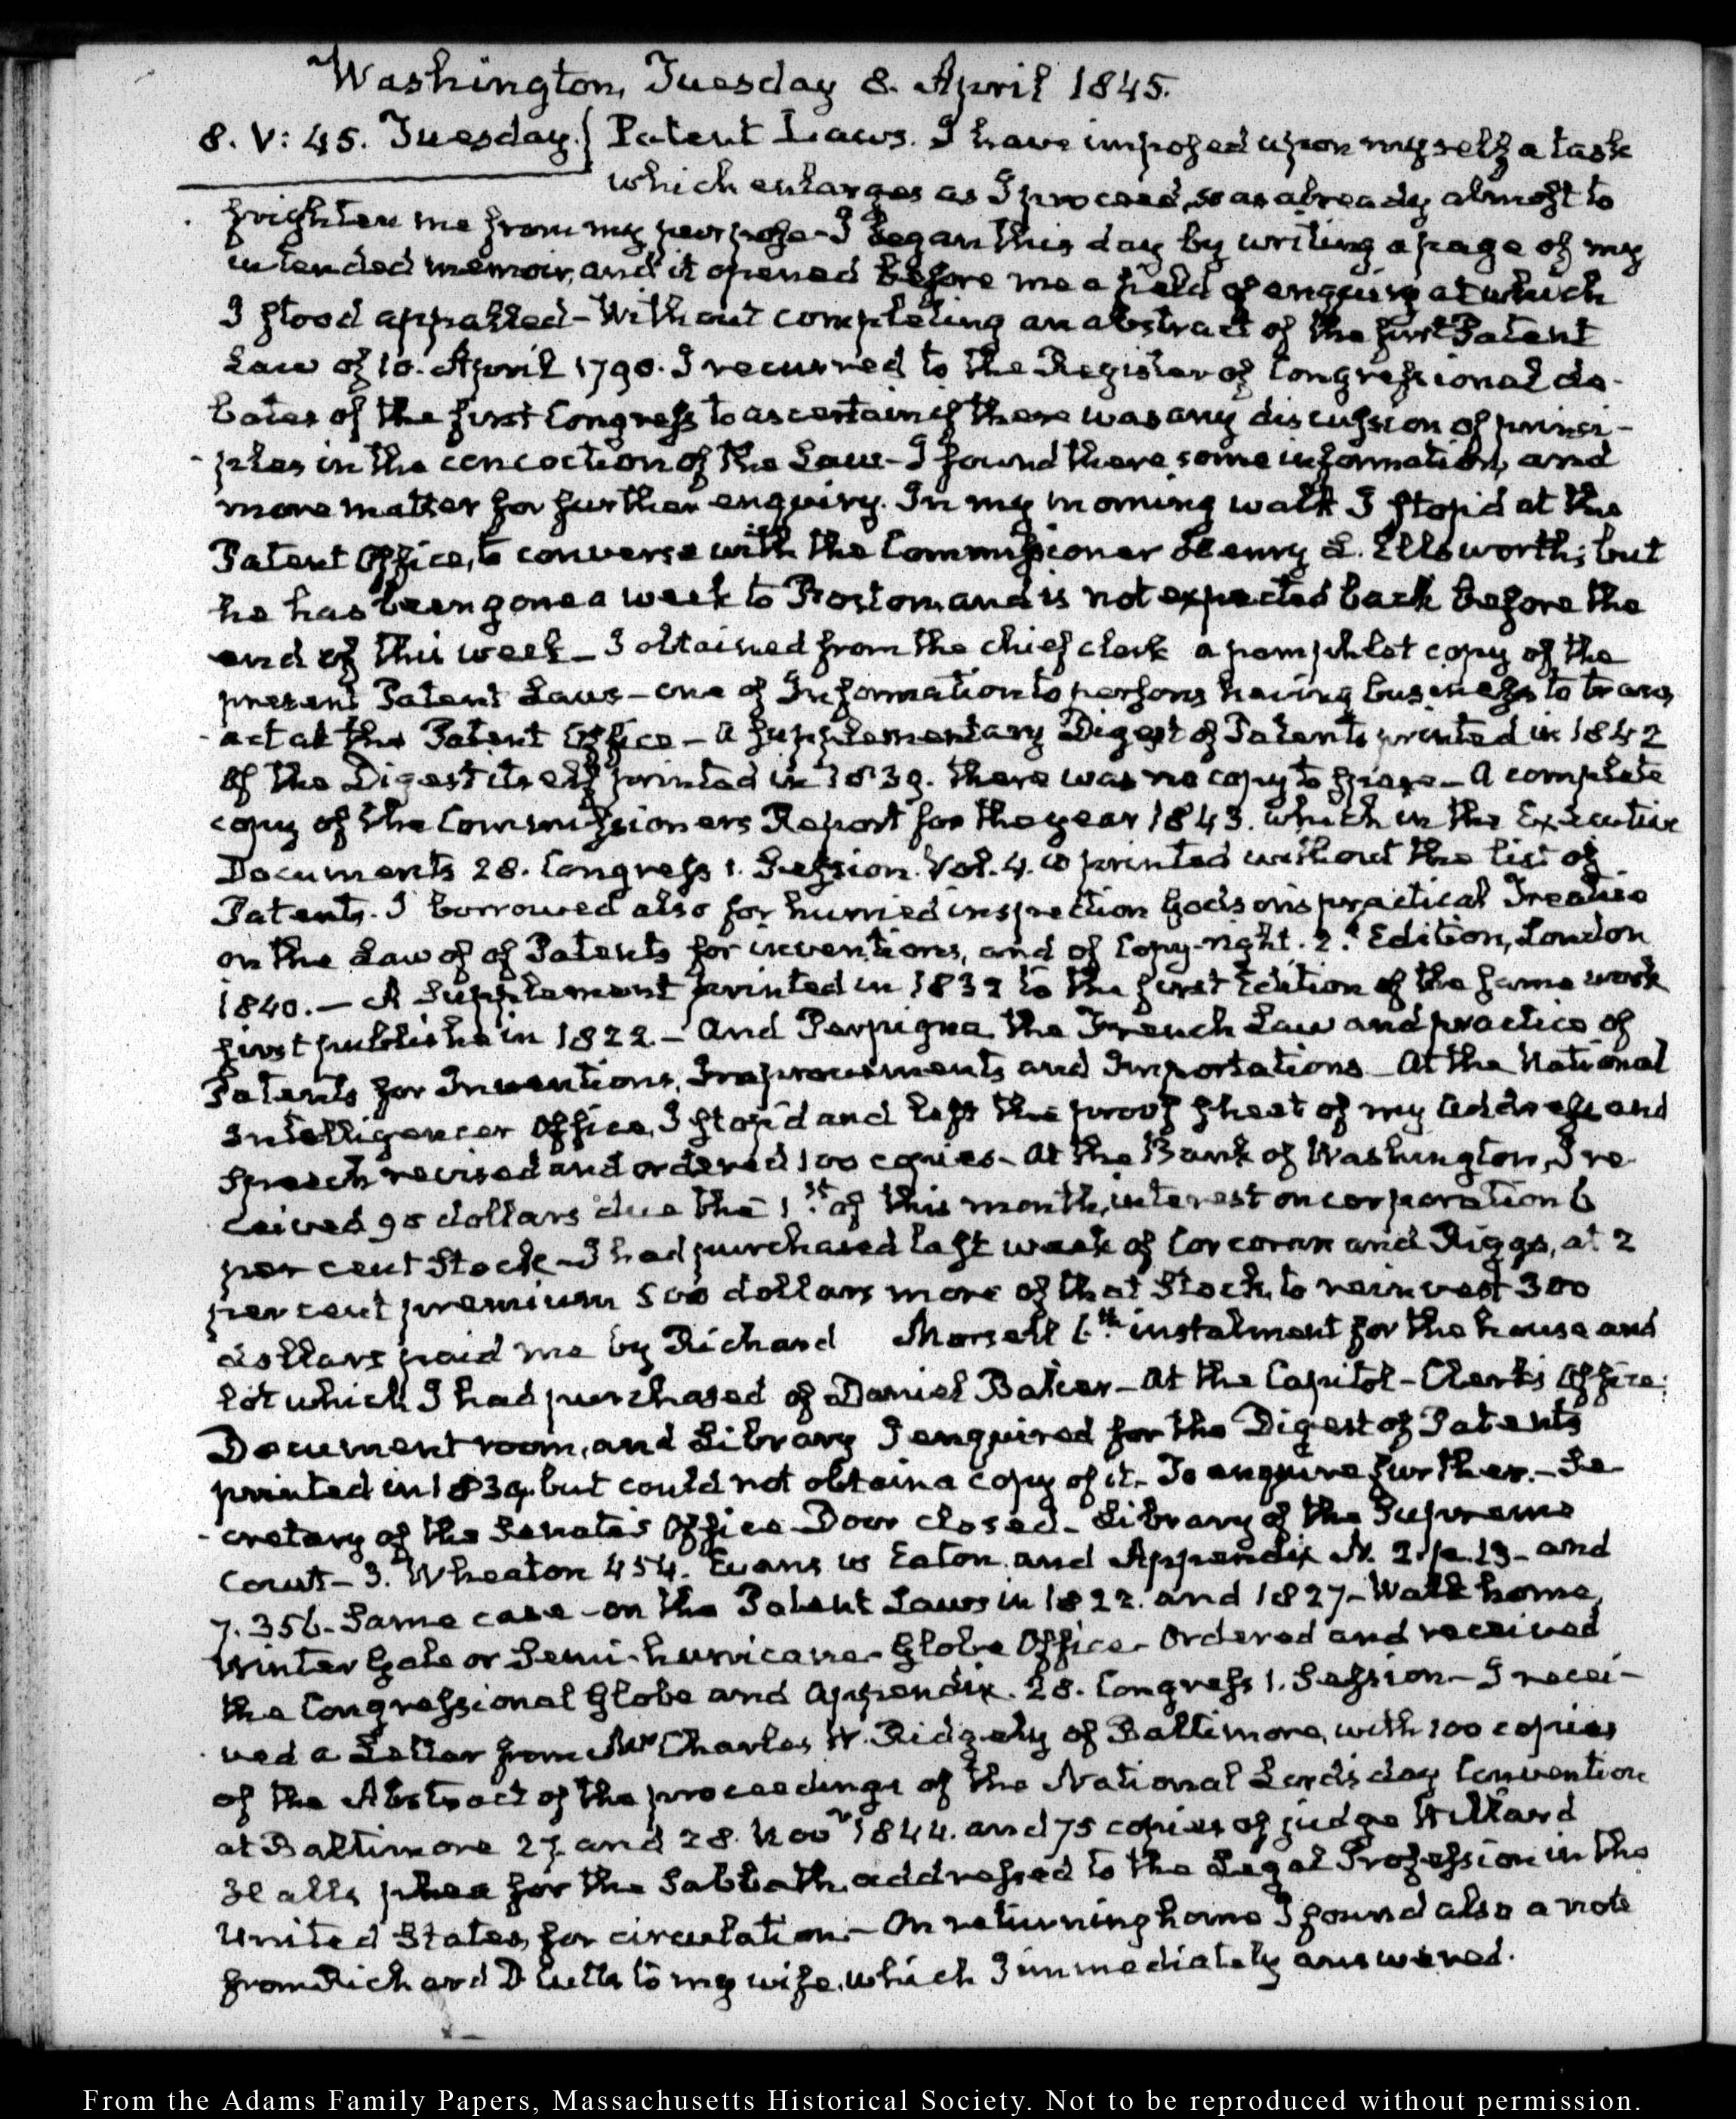 Washington, Tuesday 8. April 1845.
8. V: 45. Tuesday. Patent Laws. I have imposed upon myself a task
which enlarges as I proceed, so as already almost to
frighten me from my purpose - I began this day by writing a page of my
intended memoir, and it opened before me a field of enquiry at which
I stood appalled - Without completing an abstract of the first Patent
Law of 10. April 1790. I recurred to the Register of Congressional de-
bates of the first Congress to ascertain if there was any discussion of princi-
-ples in the concoction of the Law - I found there some information, and
more matter for further enquiry. In my morning walk I stop'd at the
Patent Office, to converse with the Commissioner Henry L. Ellsworth; but
he has been gone a week to Boston, and is not expected back before the
end of this week - I obtained from the chief clerk a pamphlet copy of the
present Patent Laws - one of Information to persons having business to trans
-act at the Patent Office - A supplementary Digest of Patents printed in 1842
of the Digest itself printed in 1839. there was no copy to spare - A complete
copy of the Commissioners Report for the year 1843. which in the Executive
Documents 28. Congress 1. Session. Vol. 4. is printed without the list of
Patents. I borrowed also for hurried inspection Godson's practical Treatise
on the Law of of Patents for inventions, and of Copy-right. 2.d Edition, London
1840. - A Supplement printed in 1832 to the first Edition of the same work
first publishe in 1822. - And Perpigna the French Law and practice of
Patents for Inventions, Improvements and Importations - At the National
Intelligencer Office, I stop'd and left the proof sheet of my Address and
Speech revised and ordered 100 copies - At the Bank of Washington, I re
ceived 90 dollars due the 1.st of this month, interest on corporation 6
per cent Stock - I had purchased last week of Corcoran and Riggs, at 2
per cent premium 500 dollars more of that Stock, to reinvest 300
dollars paid me by Richard Morsell 6.th instalment for the house and
lot which I had purchased of Daniel Baker - At the Capitol - Clerk's Office;
Document room, and Library I enquired for the Digest of Patents
printed in 1839. but could not obtain a copy of it - To enquire further. - Se
-cretary of the Senate's Office Door closed - Library of the Supreme
Court - 3. Wheaton 454. Evans vs Eaton. and Appendix N. 2. p. 13 - and
7. 356. Same case - on the Patent Laws in 1822. and 1827 - Walk home,
Winter Gale or Semi-hurricane - Globe Office - Ordered and received
the Congressional Globe and Appendix. 28. Congress 1. Session - I recei-
ved a Letter from Mr Charles W. Ridgely of Baltimore, with 100 copies
of the Abstract of the proceedings of the National Lord's day Convention
at Baltimore 27. and 28. Novr 1844. and 75 copies of judge Willard
Hall's plea for the Sabbath, addressed to the Legal Profession in the
United States, for circulation. - On returning home I found also a note
from Richard D Cutts to my wife, which I immediately answered.
From the Adams Family Papers, Massachusetts Historical Society. Not to be reproduced without permission.